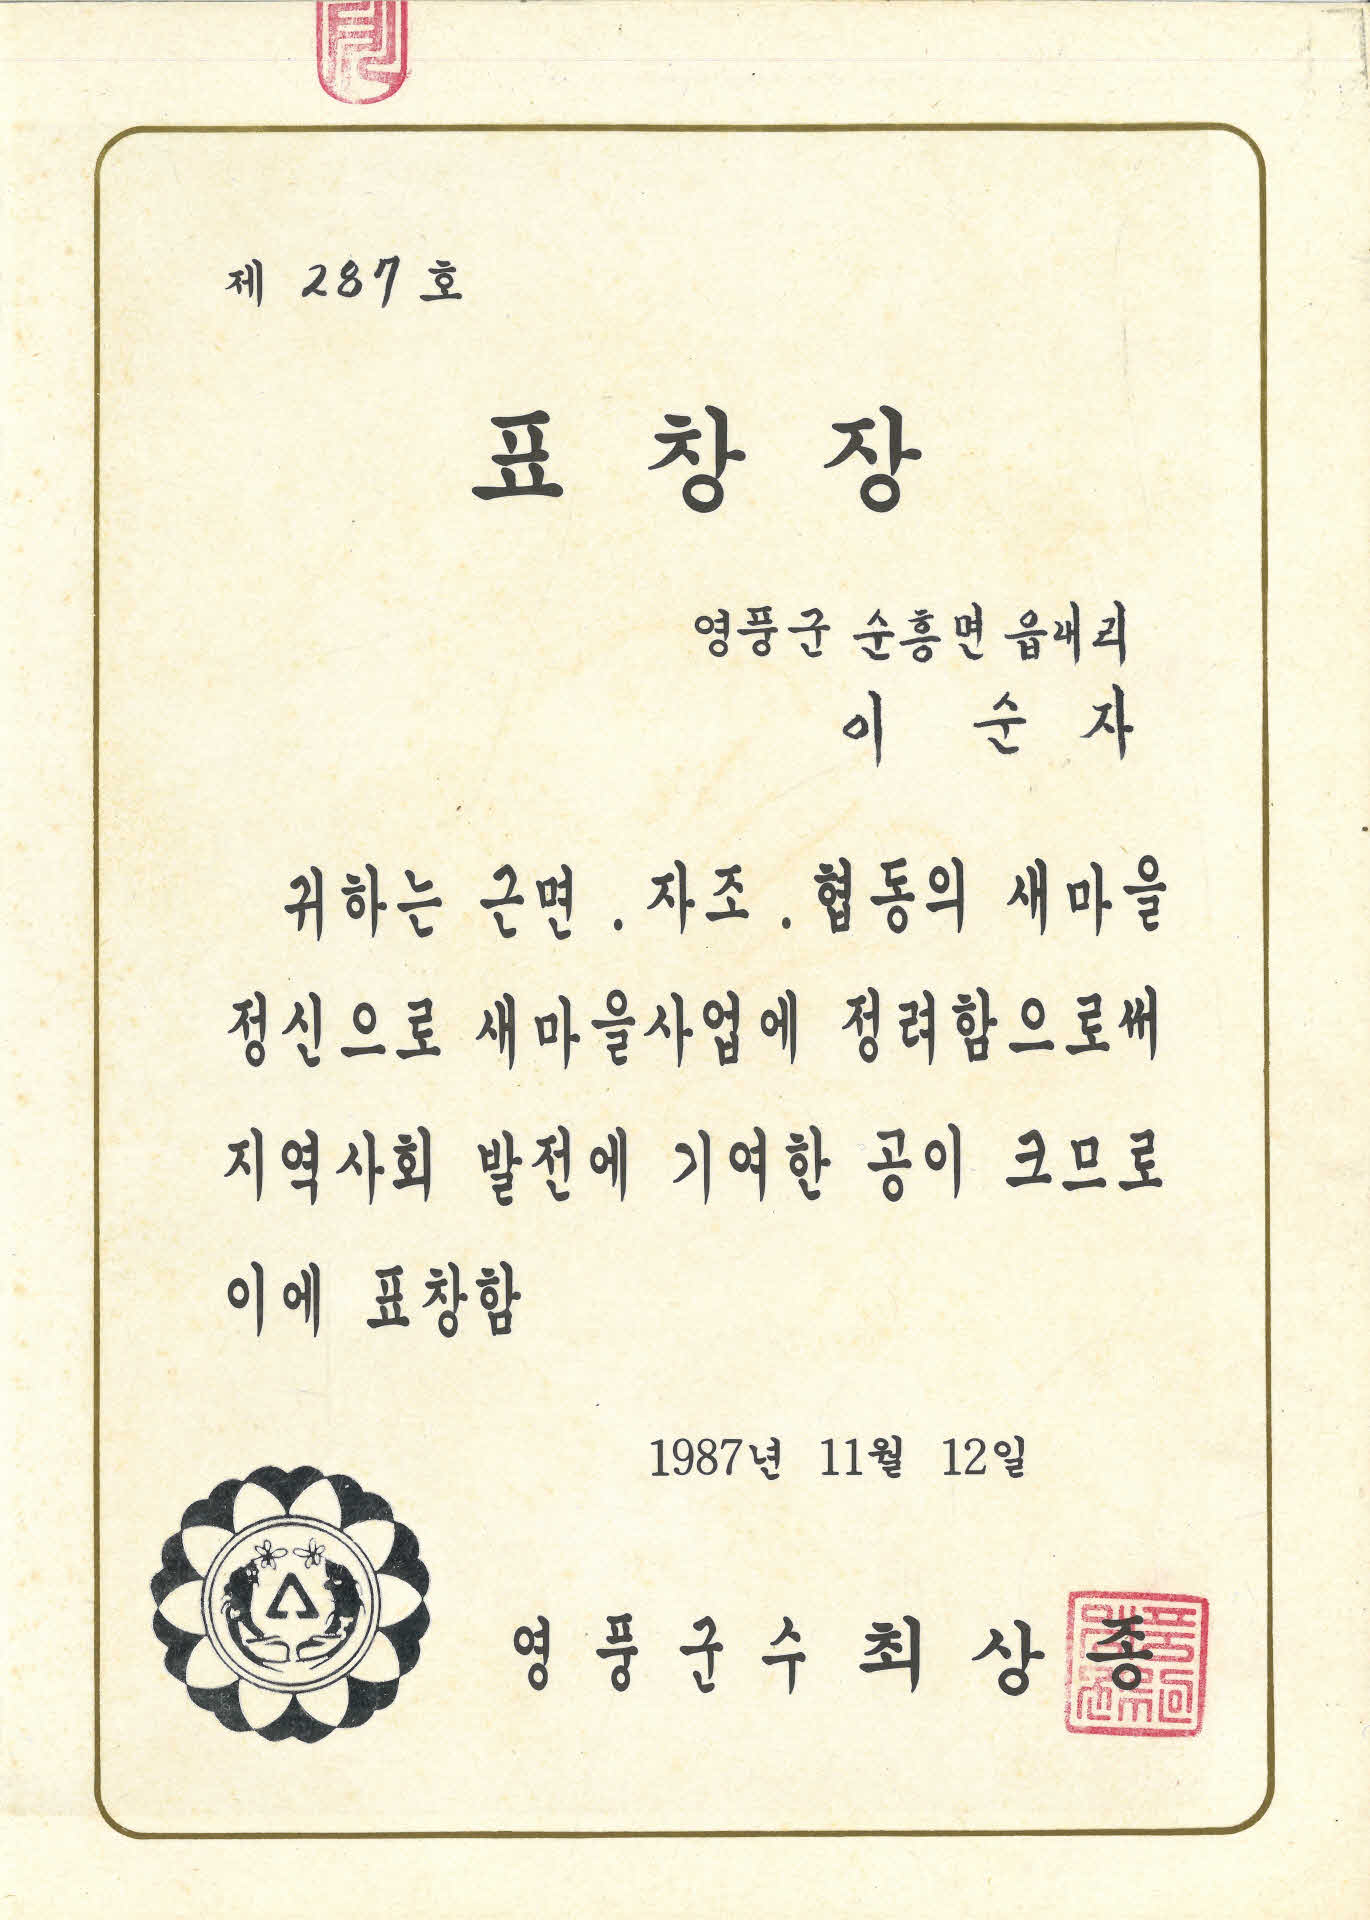 제 287 호
표창장
영풍군 순흥면 읍내리
이 순 자
귀하는 근면 . 자조 . 협동의 새마을
정신으로 새마을사업에 정려함으로써
지역사회 발전에 기여한 공이 크므로
이에 표창함
1987년 11월 12일
영풍군수 최상종